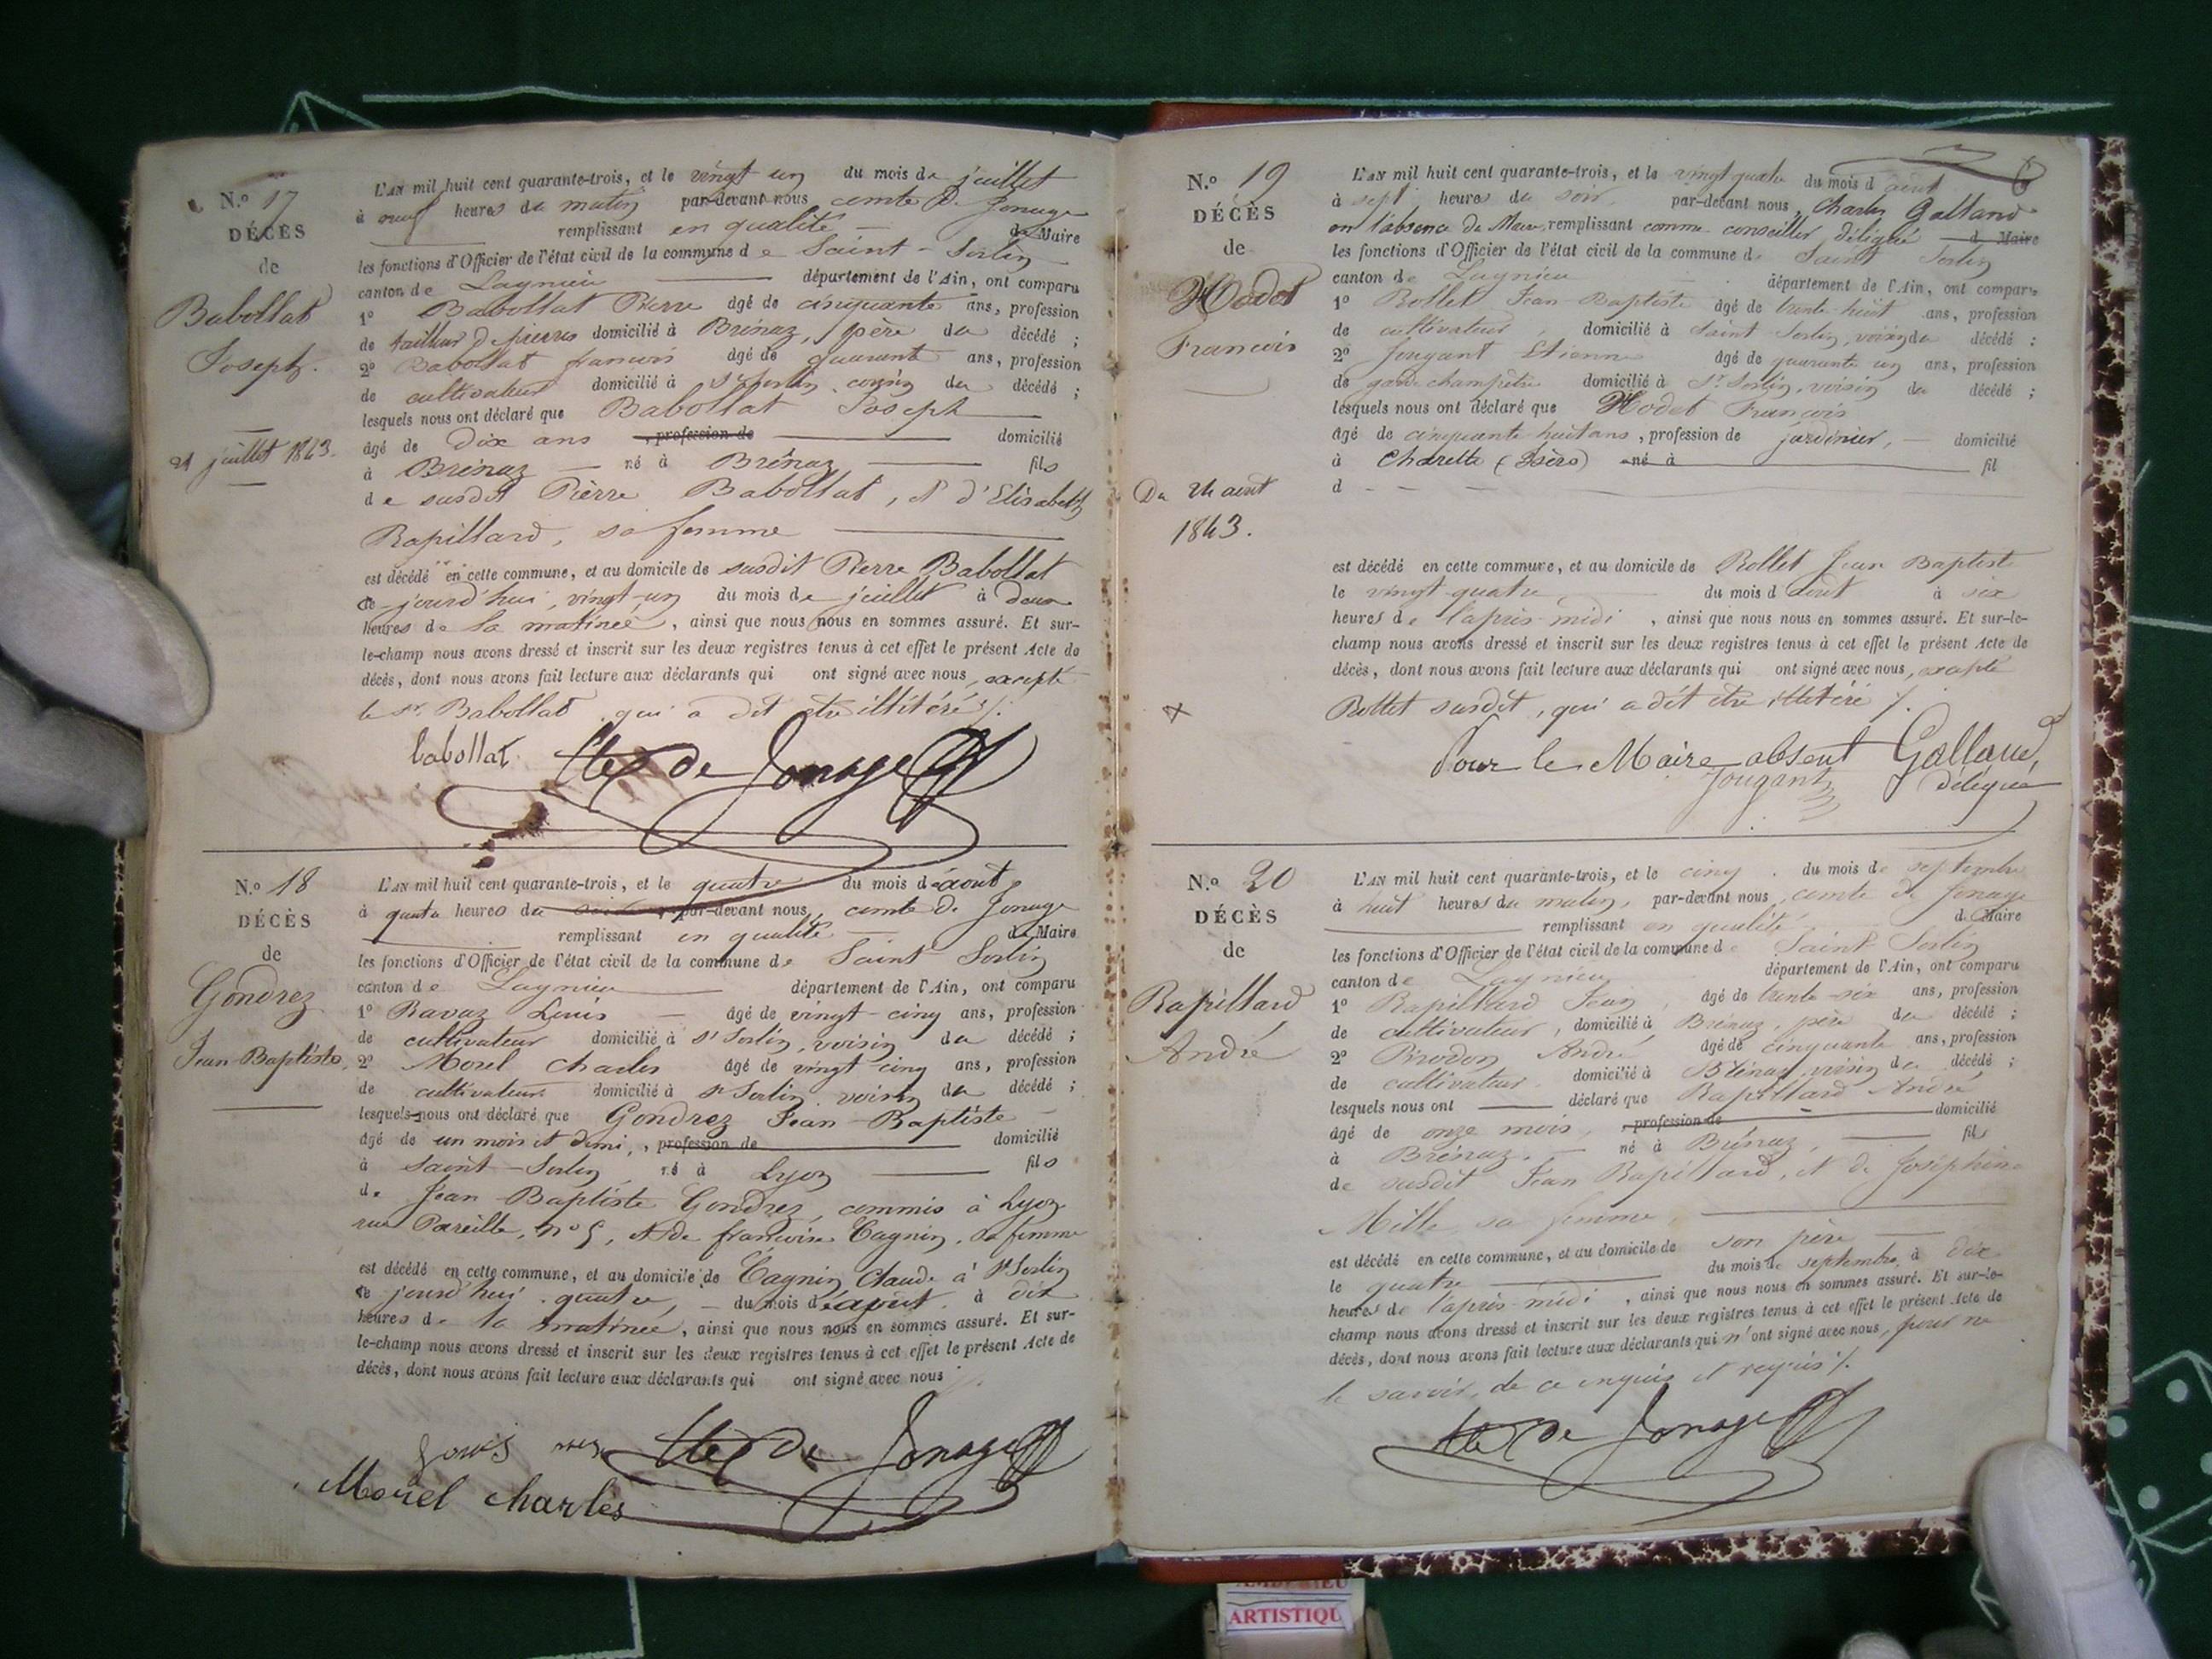 N.o 17
DÉCÈS
de
Babollat
Joseph.
21 juillet 1843.
L'AN mil huit cent quarante-trois, et le vingt un du mois de juillet
à neuf heures du matin par-devant nous comte De Jonage
remplissant en qualité de Maire
les fonctions d'Officier de l'état civil de la commune de Saint-Sorlin
canton de Lagnieu département de l'Ain, ont comparu
1o Babollat Pierre âgé de cinquante ans, profession
de tailleur de pierres domicilié à Brénaz, père du décédé ;
2o Babollat francois âgé de quarante ans, profession
de cultivateur domicilié à St Sorlin, cousin du décédé ;
lesquels nous ont déclaré que Babollat Joseph
âgé de Dix ans , profession de domicilié
à Brénaz né à Brénaz fils
de susdit Pierre Babollat, et d'Elisabeth
Rapillard, sa femme
est décédé en cette commune, et au domicile de susdit Pierre Babollat
ce jourd'hui, vingt-un du mois de juillet à deux
heures de la matinée, ainsi que nous nous en sommes assuré. Et sur-
le-champ nous avons dressé et inscrit sur les deux registres tenus à cet effet le présent Acte de
décès, dont nous avons fait lecture aux déclarants qui ont signé avec nous, excepté
le sr. Babollat qui a dit etre illitéré ./.
babollat Cte De Jonage
N.o 18
DÉCÈS
de
Gondrez
Jean-Baptiste.
L'AN mil huit cent quarante-trois, et le quatre du mois d'aout
à quatre heures du soir par-devant nous, comte De Jonage
remplissant en qualité de Maire
les fonctions d'Officier de l'état civil de la commune de Saint Sorlin
canton de Lagnieu département de l'Ain, ont comparu
1o Ravaz Louis âgé de vingt-cinq ans, profession
de cultivateur domicilié à St Sorlin, voisin du décédé ;
2o Morel Charles âgé de vingt cinq ans, profession
de cultivateur domicilié à St Sorlin voisin du décédé ;
lesquels nous ont déclaré que Gondrez Jean-Baptiste
âgé de un mois et demi, , profession de domicilié
à Saint-Sorlin né à Lyon fils
de Jean-Baptiste Gondrez, commis à Lyon
rue Pareille, no 5, et de francoise Cagnin, sa femme
est décédé en cette commune, et au domicile de Cagnin Claude à St Sorlin
ce jourd'hui quatre, du mois d'aout à dix
heures de la matinée, ainsi que nous nous en sommes assuré. Et sur-
le-champ nous avons dressé et inscrit sur les deux registres tenus à cet effet le présent Acte de
décès, dont nous avons fait lecture aux déclarants qui ont signé avec nous
Cte De Jonage
Morel charles
N.o 19
DÉCÈS
de
Hodet
Francois
Du 24 aout
1843.
L'AN mil huit cent quarante-trois, et le vingt quatre du mois d'aout
à sept heures du soir, par-devant nous, Charles Galland
en l'absence du Maire, remplissant comme conseiller délégué d Maire
les fonctions d'Officier de l'état civil de la commune de Saint Sorlin
canton de Lagnieu département de l'Ain, ont comparu
1o Rollet Jean-Baptiste âgé de trente-huit ans, profession
de cultivateur, domicilié à Saint Sorlin, voisin du décédé ;
2o Jougant Etienne âgé de quarante un ans, profession
de garde champêtre domicilié à St Sorlin, voisin du décédé ;
lesquels nous ont déclaré que Hodet Francois
âgé de cinquante-huit ans, profession de jardinier, domicilié
à Charette (Isère) né à fil
d
est décédé en cette commune, et au domicile de Rollet Jean Baptiste
le vingt-quatre du mois d'aout à six
heures de l'après-midi, ainsi que nous nous en sommes assuré. Et sur-le-
champ nous avons dressé et inscrit sur les deux registres tenus à cet effet le présent Acte de
décès, dont nous avons fait lecture aux déclarants qui ont signé avec nous, excepté
Rollet susdit, qui a dit etre illitéré ./.
Pour le Maire absent Galland,
Jougant délégué
N.o 20
DÉCÈS
de
Rapillard
André
L'AN mil huit cent quarante-trois, et le cinq du mois de septembre
à huit heures du matin, par-devant nous, comte De Jonage
remplissant en qualité de Maire
les fonctions d'Officier de l'état civil de la commune de Saint Sorlin
canton de Lagnieu département de l'Ain, ont comparu
1o Rapillard Jean, âgé de trente-six ans, profession
de cultivateur, domicilié à Brénaz, père du décédé ;
2o Brodon André âgé de cinquante ans, profession
de cultivateur domicilié à Brénaz voisin du décédé ;
lesquels nous ont déclaré que Rapillard André
âgé de onze mois, , profession de domicilié
à Brénaz, né à Brénaz, fils
de susdit Jean Rapillard, et de Joséphine
Mille sa femme
est décédé en cette commune, et au domicile de son père
le quatre du mois de septembre à dix
heures de l'après-midi, ainsi que nous nous en sommes assuré. Et sur-le-
champ nous avons dressé et inscrit sur les deux registres tenus à cet effet le présent Acte de
décès, dont nous avons fait lecture aux déclarants qui n'ont signé avec nous, pour ne
le savoir, de ce enquis et requis ./.
Cte De Jonage
ARTISTIQU